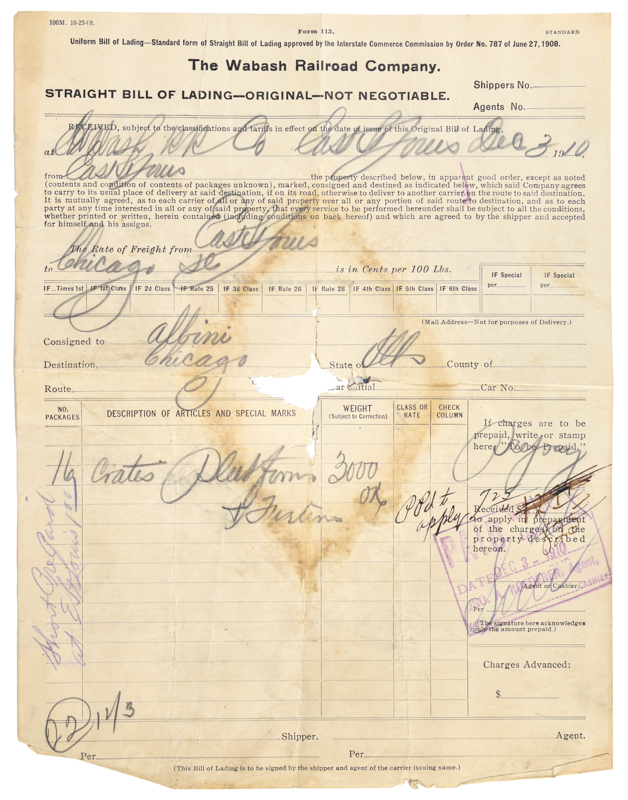 100M. 10-23-08.
Form 113.
STANDARD
Uniform Bill of Lading—Standard form of Straight Bill of Lading approved by the Interstate Commerce Commission by Order No. 787 of June 27, 1908.
The Wabash Railroad Company.
Shippers No.
STRAIGHT BILL OF LADING—ORIGINAL—NOT NEGOTIABLE.
Agents No.
RECEIVED, subject to the classifications and tariffs in effect on the date of issue of this Original Bill of Lading,
at Wabash RR Co East St Louis Dec 3 1910
from East St Louis the property described below, in apparent good order, except as noted
(contents and condition of contents of packages unknown), marked, consigned and destined as indicated below, which said Company agrees
to carry to its usual place of delivery at said destination, if on its road, otherwise to deliver to another carrier on the route to said destination.
It is mutually agreed, as to each carrier of all or any of said property over all or any portion of said route to destination, and as to each
party at any time interested in all or any of said property, that every service to be performed hereunder shall be subject to all the conditions,
whether printed or written, herein contained (including conditions on back hereof) and which are agreed to by the shipper and accepted
for himself and his assigns.
The Rate of Freight from East St Louis
to Chicago Ill is in Cents per 100 Lbs.
IF Special per
IF Special per
IF Times 1st
IF 1st Class
IF 2d Class
IF Rule 25
IF 3d Class
IF Rule 26
IF Rule 28
IF 4th Class
IF 5th Class
IF 6th Class
(Mail Address—Not for purposes of Delivery.)
Consigned to Albini
Destination, Chicago State of Ills County of
Route, Car Initial Car No.
NO. PACKAGES
DESCRIPTION OF ARTICLES AND SPECIAL MARKS
WEIGHT (Subject to Correction)
CLASS OR RATE
CHECK COLUMN
If charges are to be
prepaid, write or stamp
here, "To be Prepaid."
16 Crates Platforms 3000
OK
Ppd t
apply
725
Received $
to apply in prepayment
of the charges on the
property described
hereon.
DATE DEC 3 - 1910
Agent,
Agent or Cashier
CASHIER
Per
(The signature here acknowledges
only the amount prepaid.)
at E St Louis
Charges Advanced:
$
22 12/3
Shipper.
Agent.
Per
Per
(This Bill of Lading is to be signed by the shipper and agent of the carrier issuing same.)